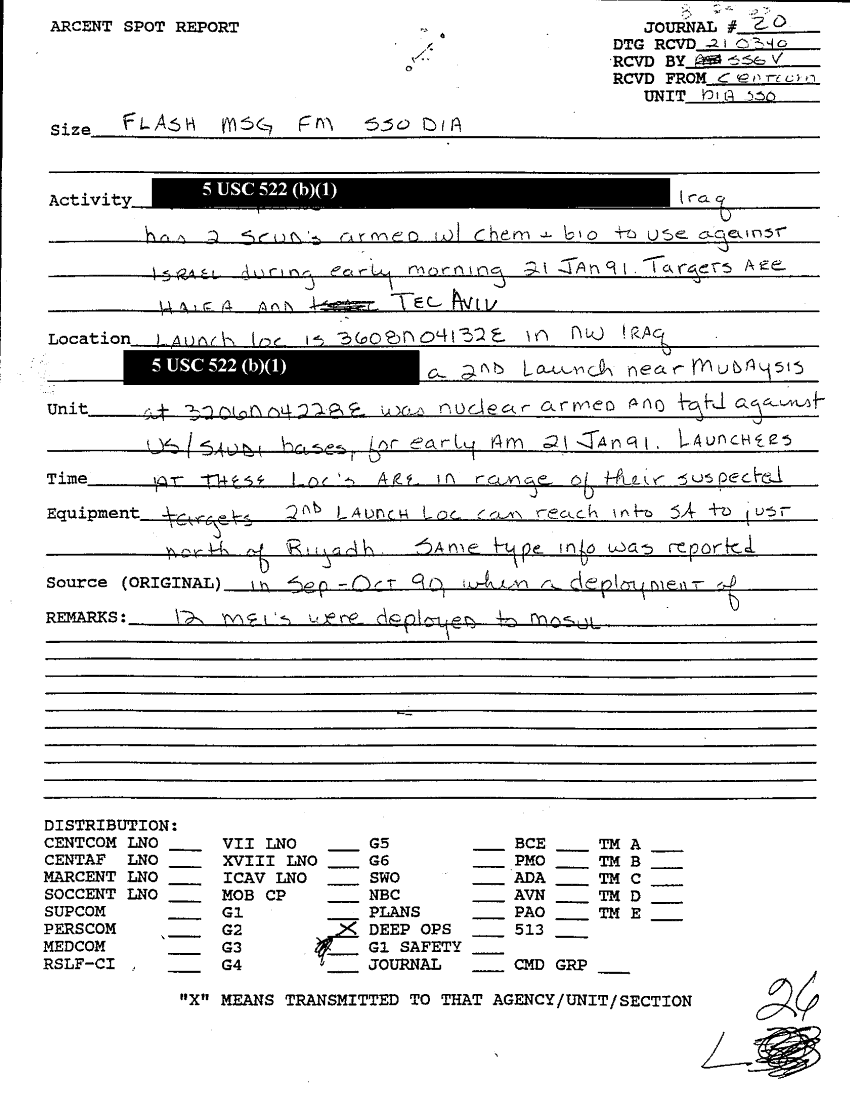 ARCENT SPOT REPORT
JOURNAL # 20
DTG RCVD 210340
RCVD BY SSG V
RCVD FROM CENTCOM
UNIT DIA SSO
Size FLASH MSG FM SSO DIA
Activity 5 USC 522 (b)(1) Iraq
has 2 SCUD's armed w/ chem + bio to use against
ISRAEL during early morning 21 JAN 91. Targers ARE
HAIFA AND TEC AVIV
Location LAUNCH loc is 3608N04132E in NW IRAQ
5 USC 522 (b)(1) a 2ND Launch near MUDAYSIS
Unit at 3206N04228E was nuclear armed AND tgtd against
US/SAUDI bases, for early AM 21 JAN 91. LAUNCHERS
Time AT THESE Loc's ARE in range of their suspected
Equipment targets 2ND LAUNCH Loc can reach into SA to just
north of Riyadh. SAME type info was reported
Source (ORIGINAL) in Sep-Oct 90, when a deployment of
REMARKS: 12 MEL's were deployed to MOSUL
DISTRIBUTION:
CENTCOM LNO ___ VII LNO ___ G5 ___ BCE ___ TM A ___
CENTAF LNO ___ XVIII LNO ___ G6 ___ PMO ___ TM B ___
MARCENT LNO ___ ICAV LNO ___ SWO ___ ADA ___ TM C ___
SOCCENT LNO ___ MOB CP ___ NBC ___ AVN ___ TM D ___
SUPCOM ___ G1 ___ PLANS ___ PAO ___ TM E ___
PERSCOM ___ G2 X DEEP OPS ___ 513 ___
MEDCOM ___ G3 ___ G1 SAFETY ___
RSLF-CI ___ G4 ___ JOURNAL ___ CMD GRP ___
"X" MEANS TRANSMITTED TO THAT AGENCY/UNIT/SECTION
26
L